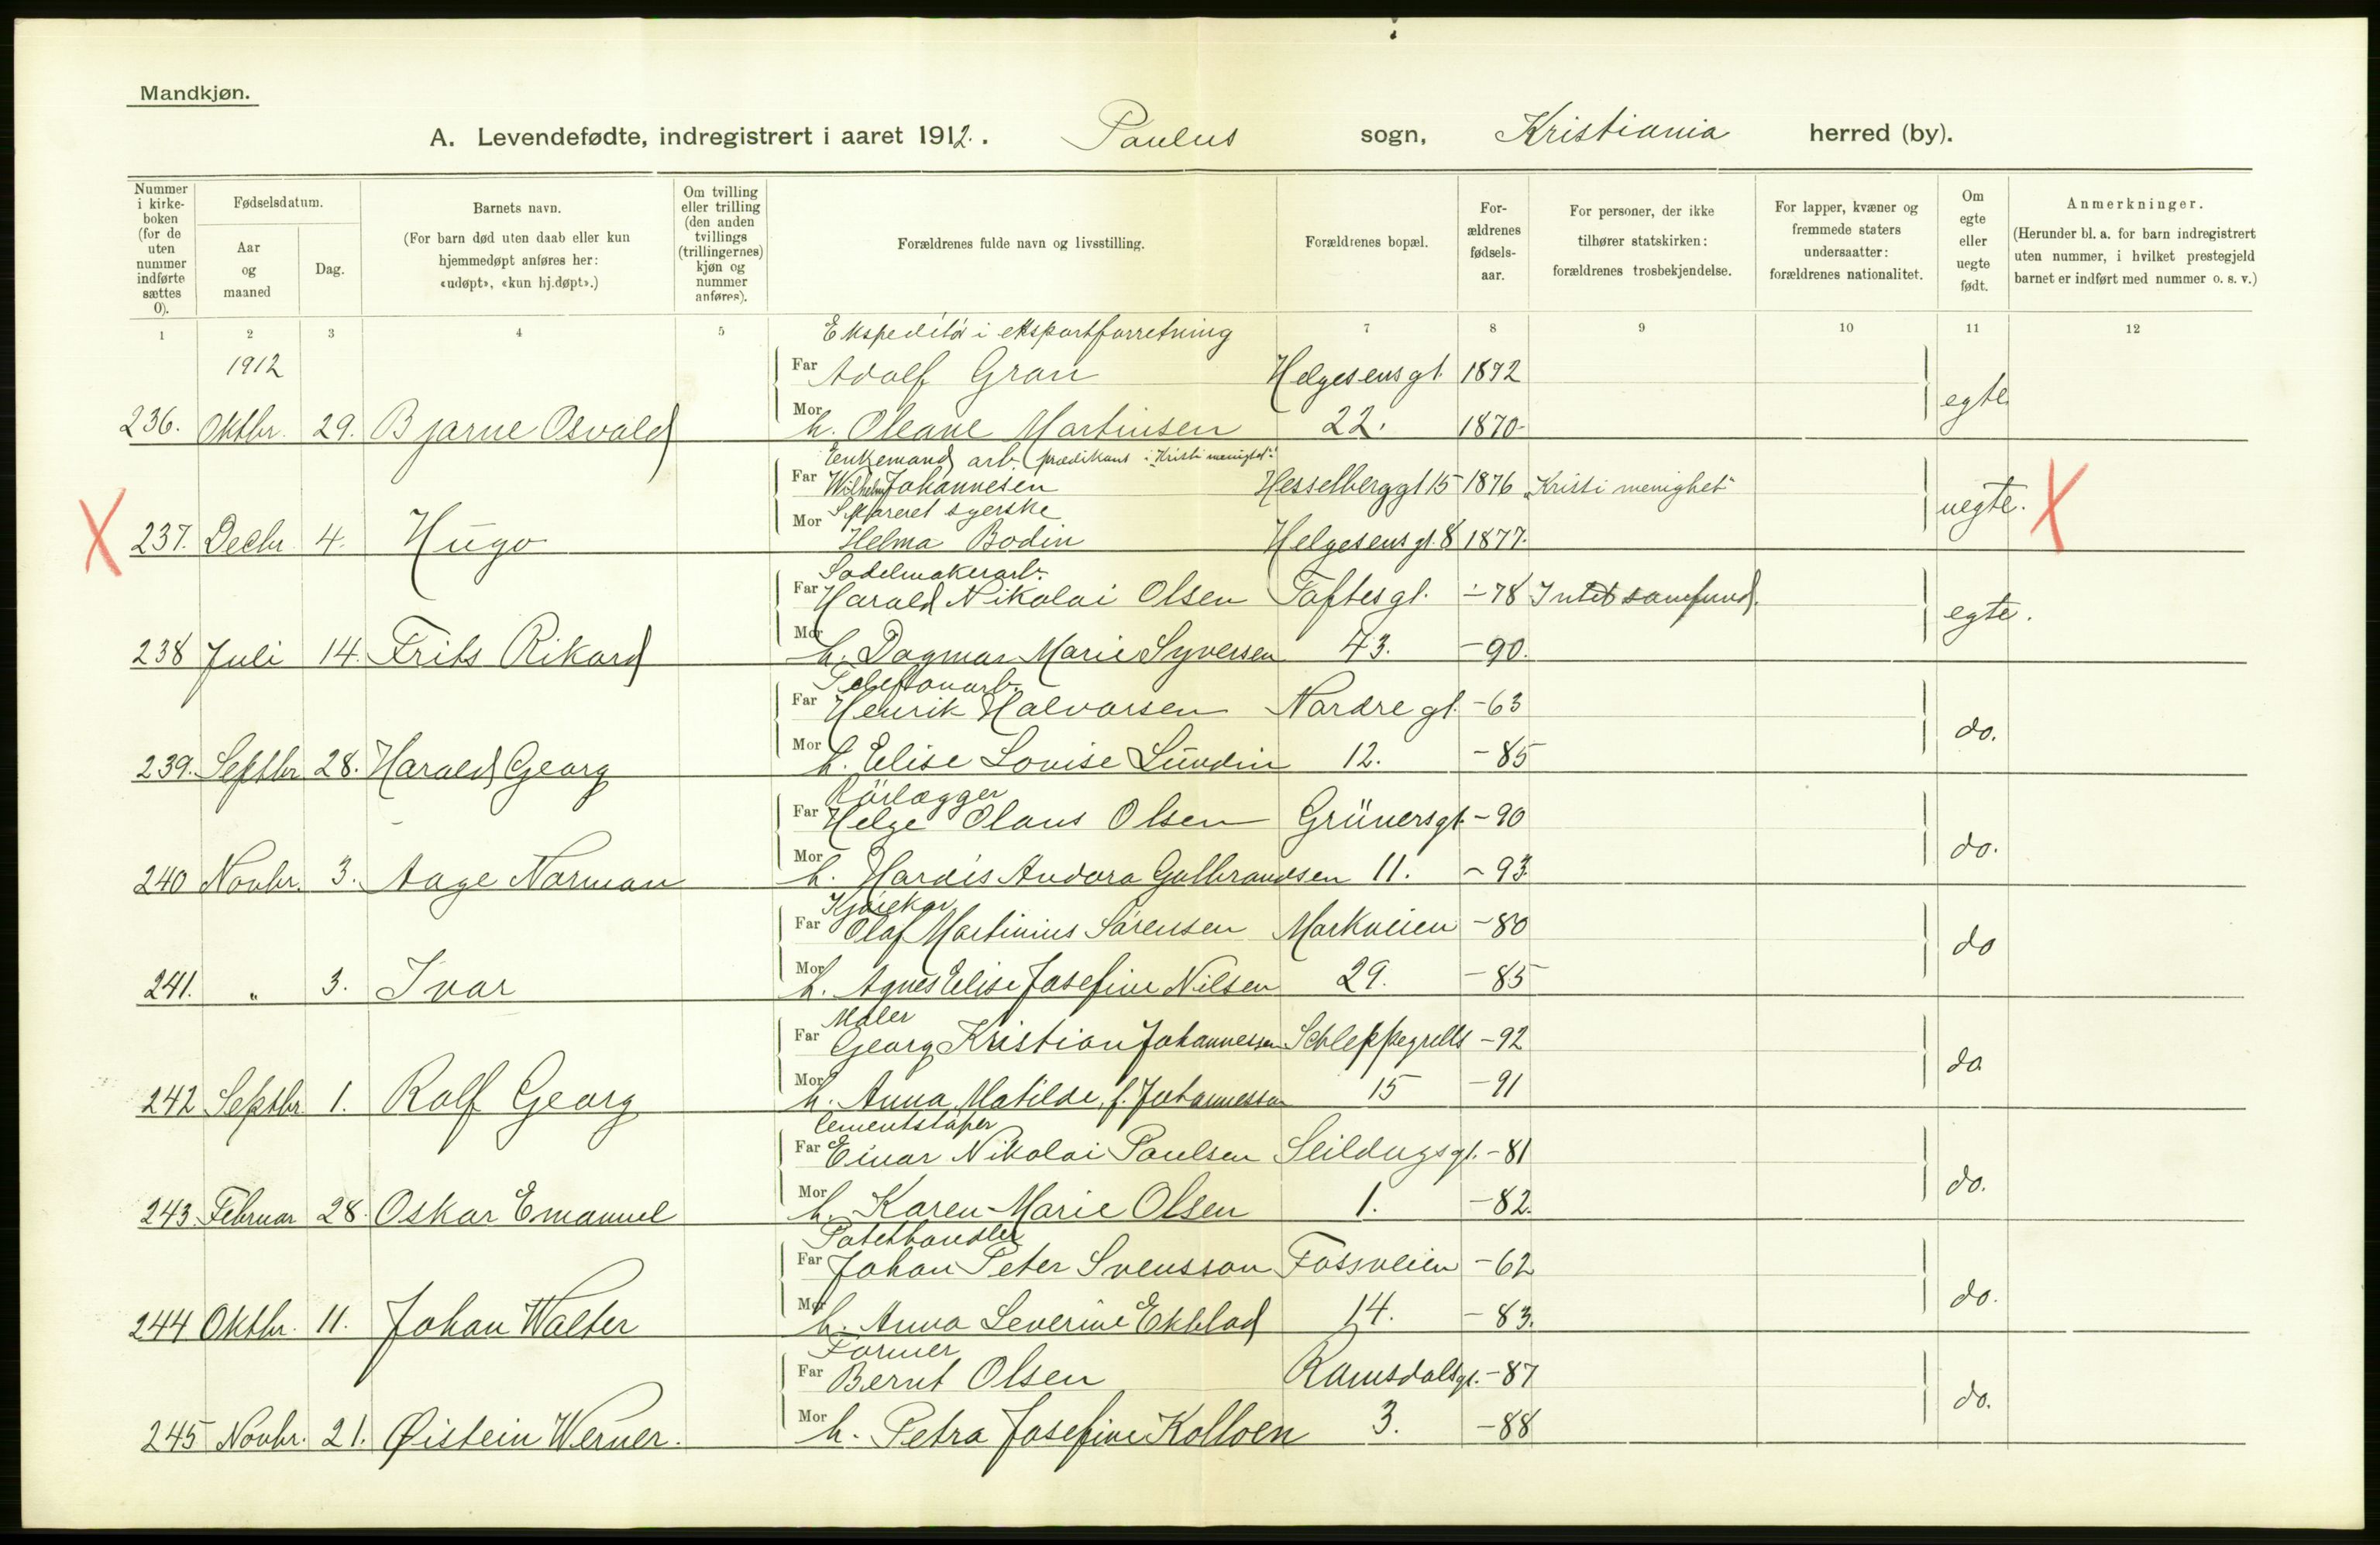 Mandkjøn.
A. Levendefødte, indregistrert i aaret 1912. Paulus sogn, Kristiania herred (by).
Nummer i kirkeboken (for de uten nummer indførte sættes 0).
Fødselsdatum.
Aar og maaned
Dag.
Barnets navn.
(For barn død uten daab eller kun hjemmedøpt anføres her: «udøpt», «kun hj.døpt».)
Om tvilling eller trilling (den anden tvillings (trillingernes) kjøn og nummer anføres).
Forældrenes fulde navn og livsstilling.
Forældrenes bopæl.
Forældrenes fødselsaar.
For personer, der ikke tilhører statskirken: forældrenes trosbekjendelse.
For lapper, kvæner og fremmede staters undersaatter: forældrenes nationalitet.
Om egte eller uegte født.
Anmerkninger.
(Herunder bl. a. for barn indregistrert uten nummer, i hvilket prestegjeld barnet er indført med nummer o. s. v.)
1 2 3 4 5 7 8 9 10 11 12
Ekspeditør i eksportforretning
1912 Far Adolf Gran Helgesens gt. 1872
236. Oktbr. 29. Bjarne Osvald Mor h. Oleane Martinsen 22. 1870 egte
Enkemand, arb. prædikant i "Kristi menighet"
Far Wilhelm Johannesen Hesselberggt 15 1876 "Kristi menighet"
Separeret syerske
237. Decbr. 4. Hugo Mor Helma Bodin Helgesens gt. 8 1877. uegte.
Sadelmakerarb.
Far Harald Nikolai Olsen Toftesgt. -78 Intet samfund.
238 Juli 14. Frits Rikard Mor h. Dagmar Marie Syversen 43. -90. egte.
Telefonarb.
Far Henrik Halvorsen Nordre gt. -63
239. Septbr 28. Harald Georg Mor h. Elise Lovise Lundin 12. -85 do.
Rörlægger
Far Helge Olaus Olsen Grünersgt. -90
240 Novbr. 3. Aage Norman Mor h. Hardis Andora Gulbrandsen 11. -93 do.
Kjörekar
Far Olaf Martinius Sörensen Markveien -80
241. " 3. Ivar Mor h. Agnes Elise Josefine Nilsen 29. -85 do
Maler
Far Georg Kristian Johannessen Schleppegrells -92
242 Septbr. 1. Rolf Georg Mor h. Anna Matilde, f. Johannessen 15 -91 do
Cementstøper
Far Einar Nikolai Paulsen Seildugsgt. -81
243 Februar 28. Oskar Emanuel Mor h. Karen Marie Olsen 1. -82. do.
Potethandler
Far Johan Peter Svensson Fossveien -62
244 Oktbr. 11. Johan Walter Mor h. Anna Severine Ekblad 14. -83. do.
Former
Far Bernt Olsen Romsdalsgt. -87
245 Novbr. 21. Øistein Werner. Mor h. Petra Josefine Kolloen 3. -88 do.